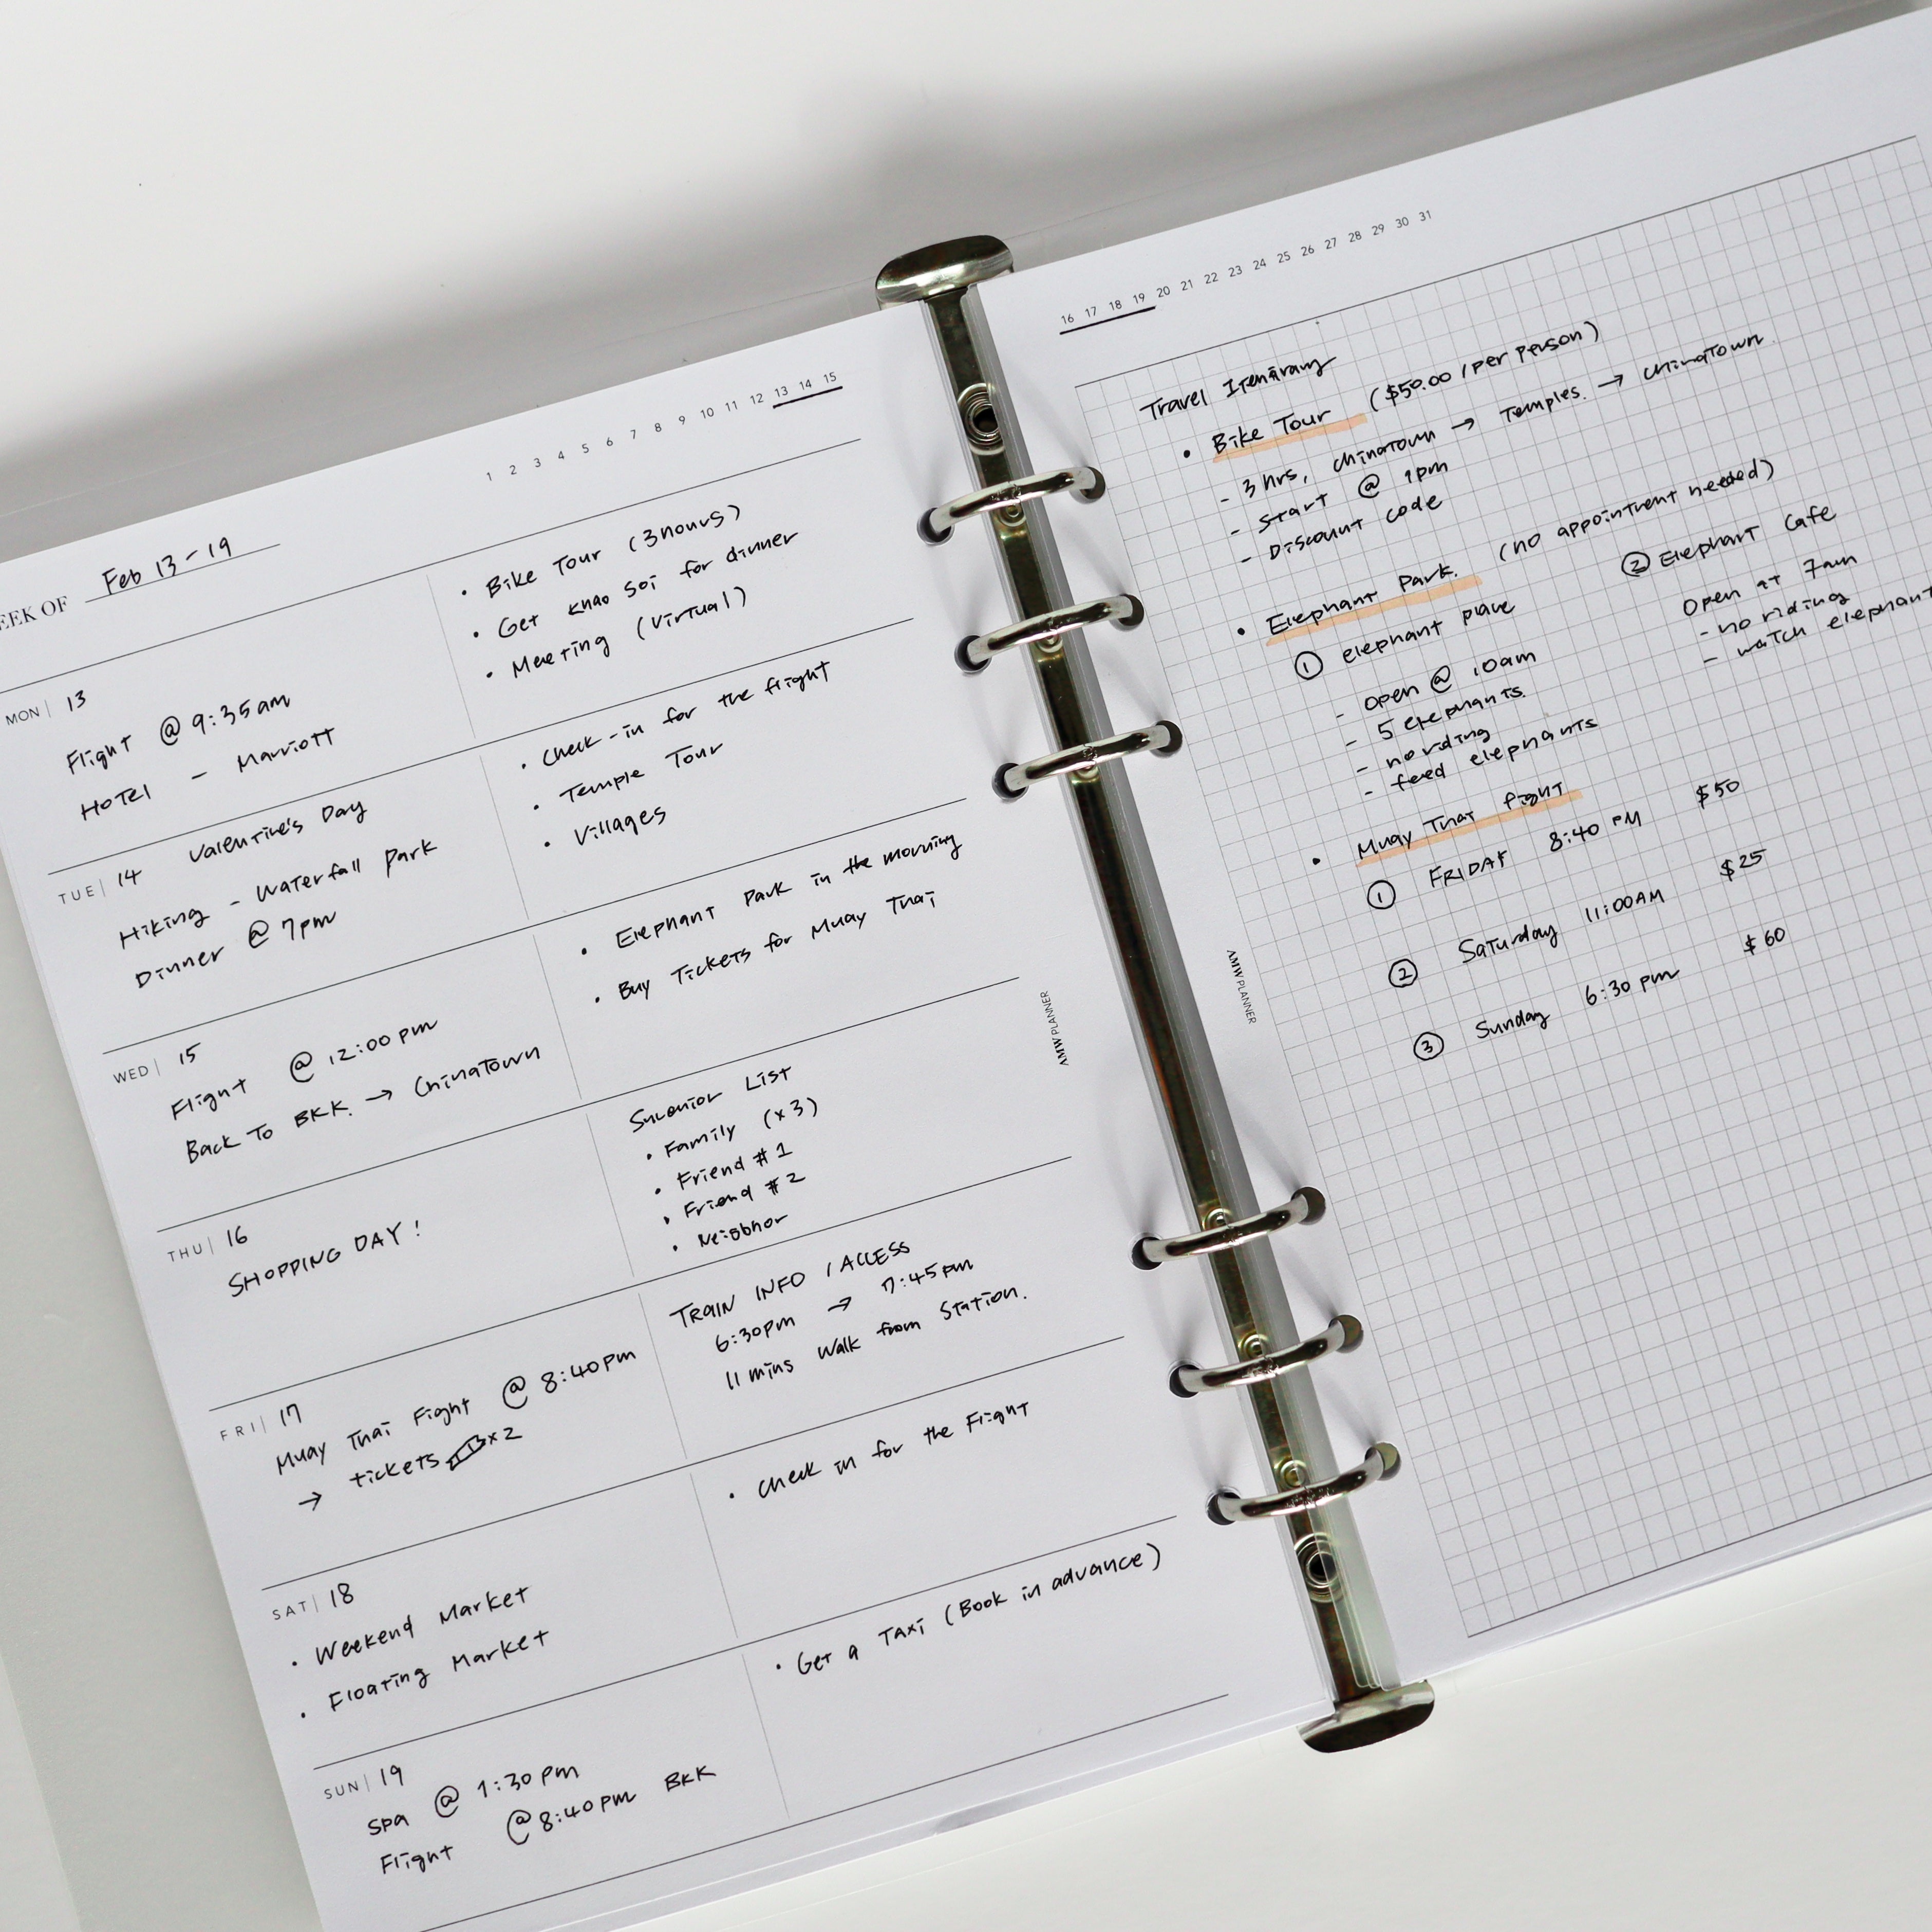 EEK OF Feb 13-19
1 2 3 4 5 6 7 8 9 10 11 12 13 14 15
MON | 13
Flight @ 9:35am
Hotel - Marriott
• Bike Tour (3hours)
• Get Khao Soi for dinner
• Meeting (Virtual)
TUE | 14 Valentine's Day
Hiking - Waterfall Park
Dinner @ 7pm
• Check-in for the flight
• Temple Tour
• Villages
WED | 15
Flight @ 12:00pm
Back To BKK. → Chinatown
• Elephant Park in the morning
• Buy Tickets for Muay Thai
THU | 16
SHOPPING DAY!
Suvenior List
• Family (x3)
• Friend #1
• Friend #2
• Neighbor
FRI | 17
Muay Thai Fight @ 8:40pm
→ tickets x2
TRAIN INFO / ACCESS
6:30pm → 7:45pm
11 mins walk from Station.
SAT | 18
• Weekend Market
• Floating Market
• Check in for the Flight
SUN | 19
Spa @ 1:30pm
Flight @8:40pm BKK
• Get a Taxi (Book in advance)
AMW PLANNER
16 17 18 19 20 21 22 23 24 25 26 27 28 29 30 31
Travel Itenirary
• Bike Tour ($50.00 /per person)
- 3 hrs, Chinatown → Temples. → Chinatown.
- Start @ 1pm
- Discount code
• Elephant Park. (no appointment needed)
① elephant place
- open @ 10am
- 5 elephants.
- no riding
- feed elephants
② Elephant Cafe
Open at 7am
- no riding
- watch elephant
• Muay Thai Fight
① FRIDAY 8:40 PM $50
② Saturday 11:00AM $25
③ Sunday 6:30 pm $60
AMW PLANNER